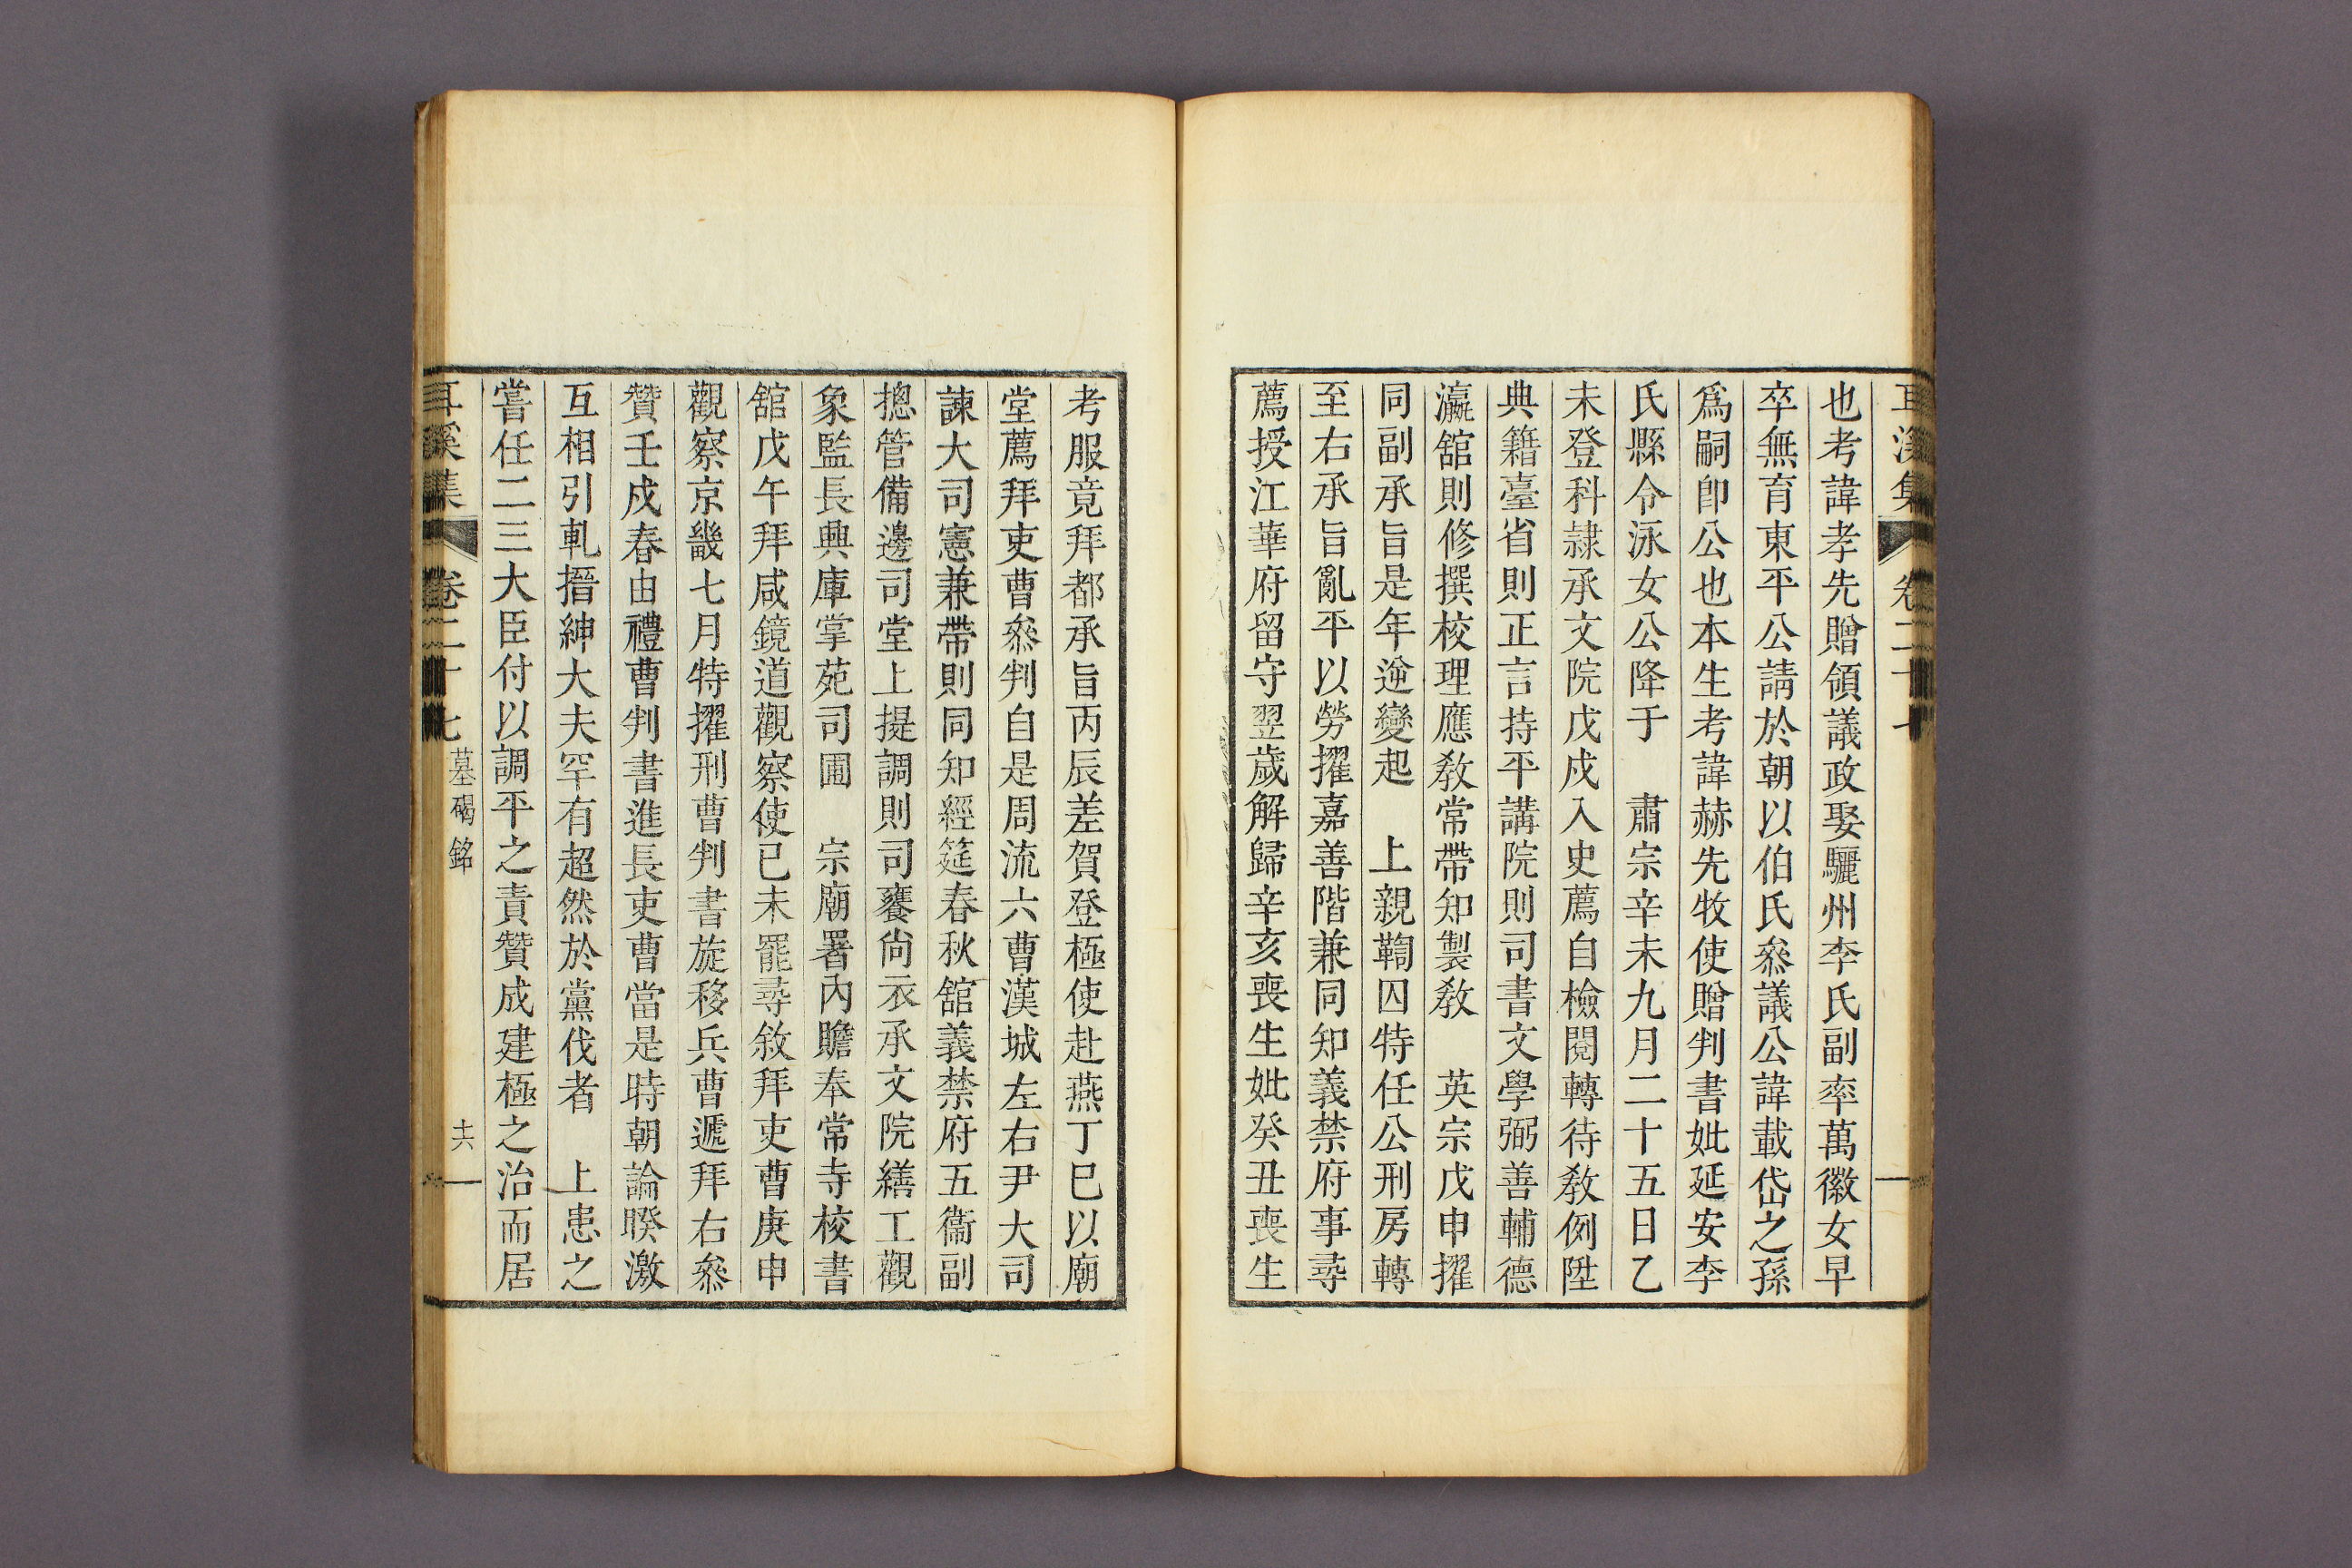 耳溪集 卷二十七
也考諱孝先贈領議政娶驪州李氏副率萬徽女早
卒無育東平公請於朝以伯氏叅議公諱載岱之孫
爲嗣卽公也本生考諱赫先牧使贈判書妣延安李
氏縣令泳女公降于　肅宗辛未九月二十五日乙
未登科隷承文院戊戍入史薦自檢閱轉待敎例陞
典籍臺省則正言持平講院則司書文學弼善輔德
瀛舘則修撰校理應敎常帶知製敎　英宗戊申擢
同副承旨是年逆變起　上親鞫囚特任公刑房轉
至右承旨亂平以勞擢嘉善階兼同知義禁府事尋
薦授江華府留守翌歲解歸辛亥喪生妣癸丑喪生
考服竟拜都承旨丙辰差賀登極使赴燕丁巳以廟
堂薦拜吏曹叅判自是周流六曹漢城左右尹大司
諫大司憲兼帶則同知經筵春秋舘義禁府五衞副
摠管備邊司堂上提調則司饔尙衣承文院繕工觀
象監長興庫掌苑司圃　宗廟署內贍奉常寺校書
舘戊午拜咸鏡道觀察使已未罷尋敘拜吏曹庚申
觀察京畿七月特擢刑曹判書旋移兵曹遞拜右叅
贊壬戍春由禮曹判書進長吏曹當是時朝論暌激
互相引軋搢紳大夫罕有超然於黨伐者　上患之
嘗任二三大臣付以調平之責贊成建極之治而居
耳溪集 卷二十七 墓碣銘 十六